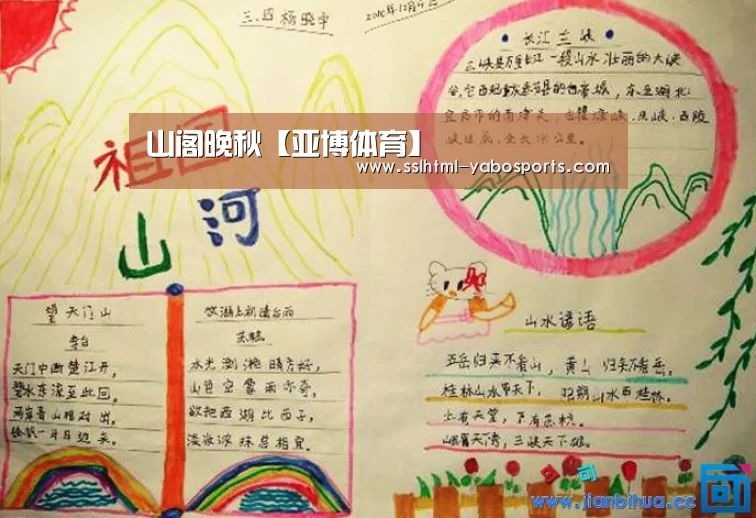 三.四 杨晓宇
2010年12月4日
祖国
山河
山阁晚秋【亚博体育】
www.sslhtml-yabosports.com
长江三峡
三峡是万里长江一段山水壮丽的大峡
谷,它西起重庆奉节县的白帝城,东至湖北
宜昌市的南津关,由瞿塘峡、巫峡、西陵
峡组成,全长 公里。
望天门山
李白
天门中断楚江开,
碧水东流至此回。
两岸青山相对出,
孤帆一片日边来。
饮湖上初晴后雨
苏轼
水光潋滟晴方好,
山色空蒙雨亦奇,
欲把西湖比西子,
淡妆浓抹总相宜。
山水谚语
五岳归来不看山,黄山归来不看岳。
桂林山水甲天下,阳朔山水甲桂林。
上有天堂,下有苏杭。
峨眉天下秀,三峡天下雄。
www.jianbihua.cc